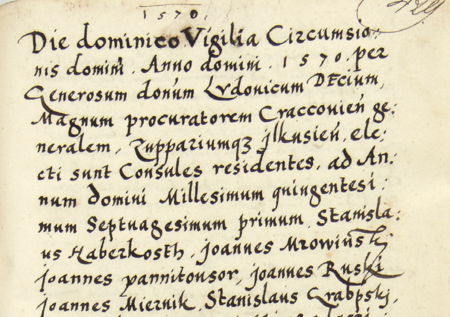 1570.
429
Die dominico Vigilia Circumsio-
nis domini. Anno domini. 1570. per
Generosum donum Lvdovicum DEcium,
Magnum procuratorem Craccovień ge:
neralem, Zuppariumqz jlkusień, ele:
cti sunt Consules residentes, ad An:
num domini Millesimum quingentesi:
mum Septuagesimum primum, Stanisla:
us Haberkosth, joannes Mrowińskj
joannes pannitonsor, joannes Ruskj
joannes Miernik, Stanislaus Grabpskj,